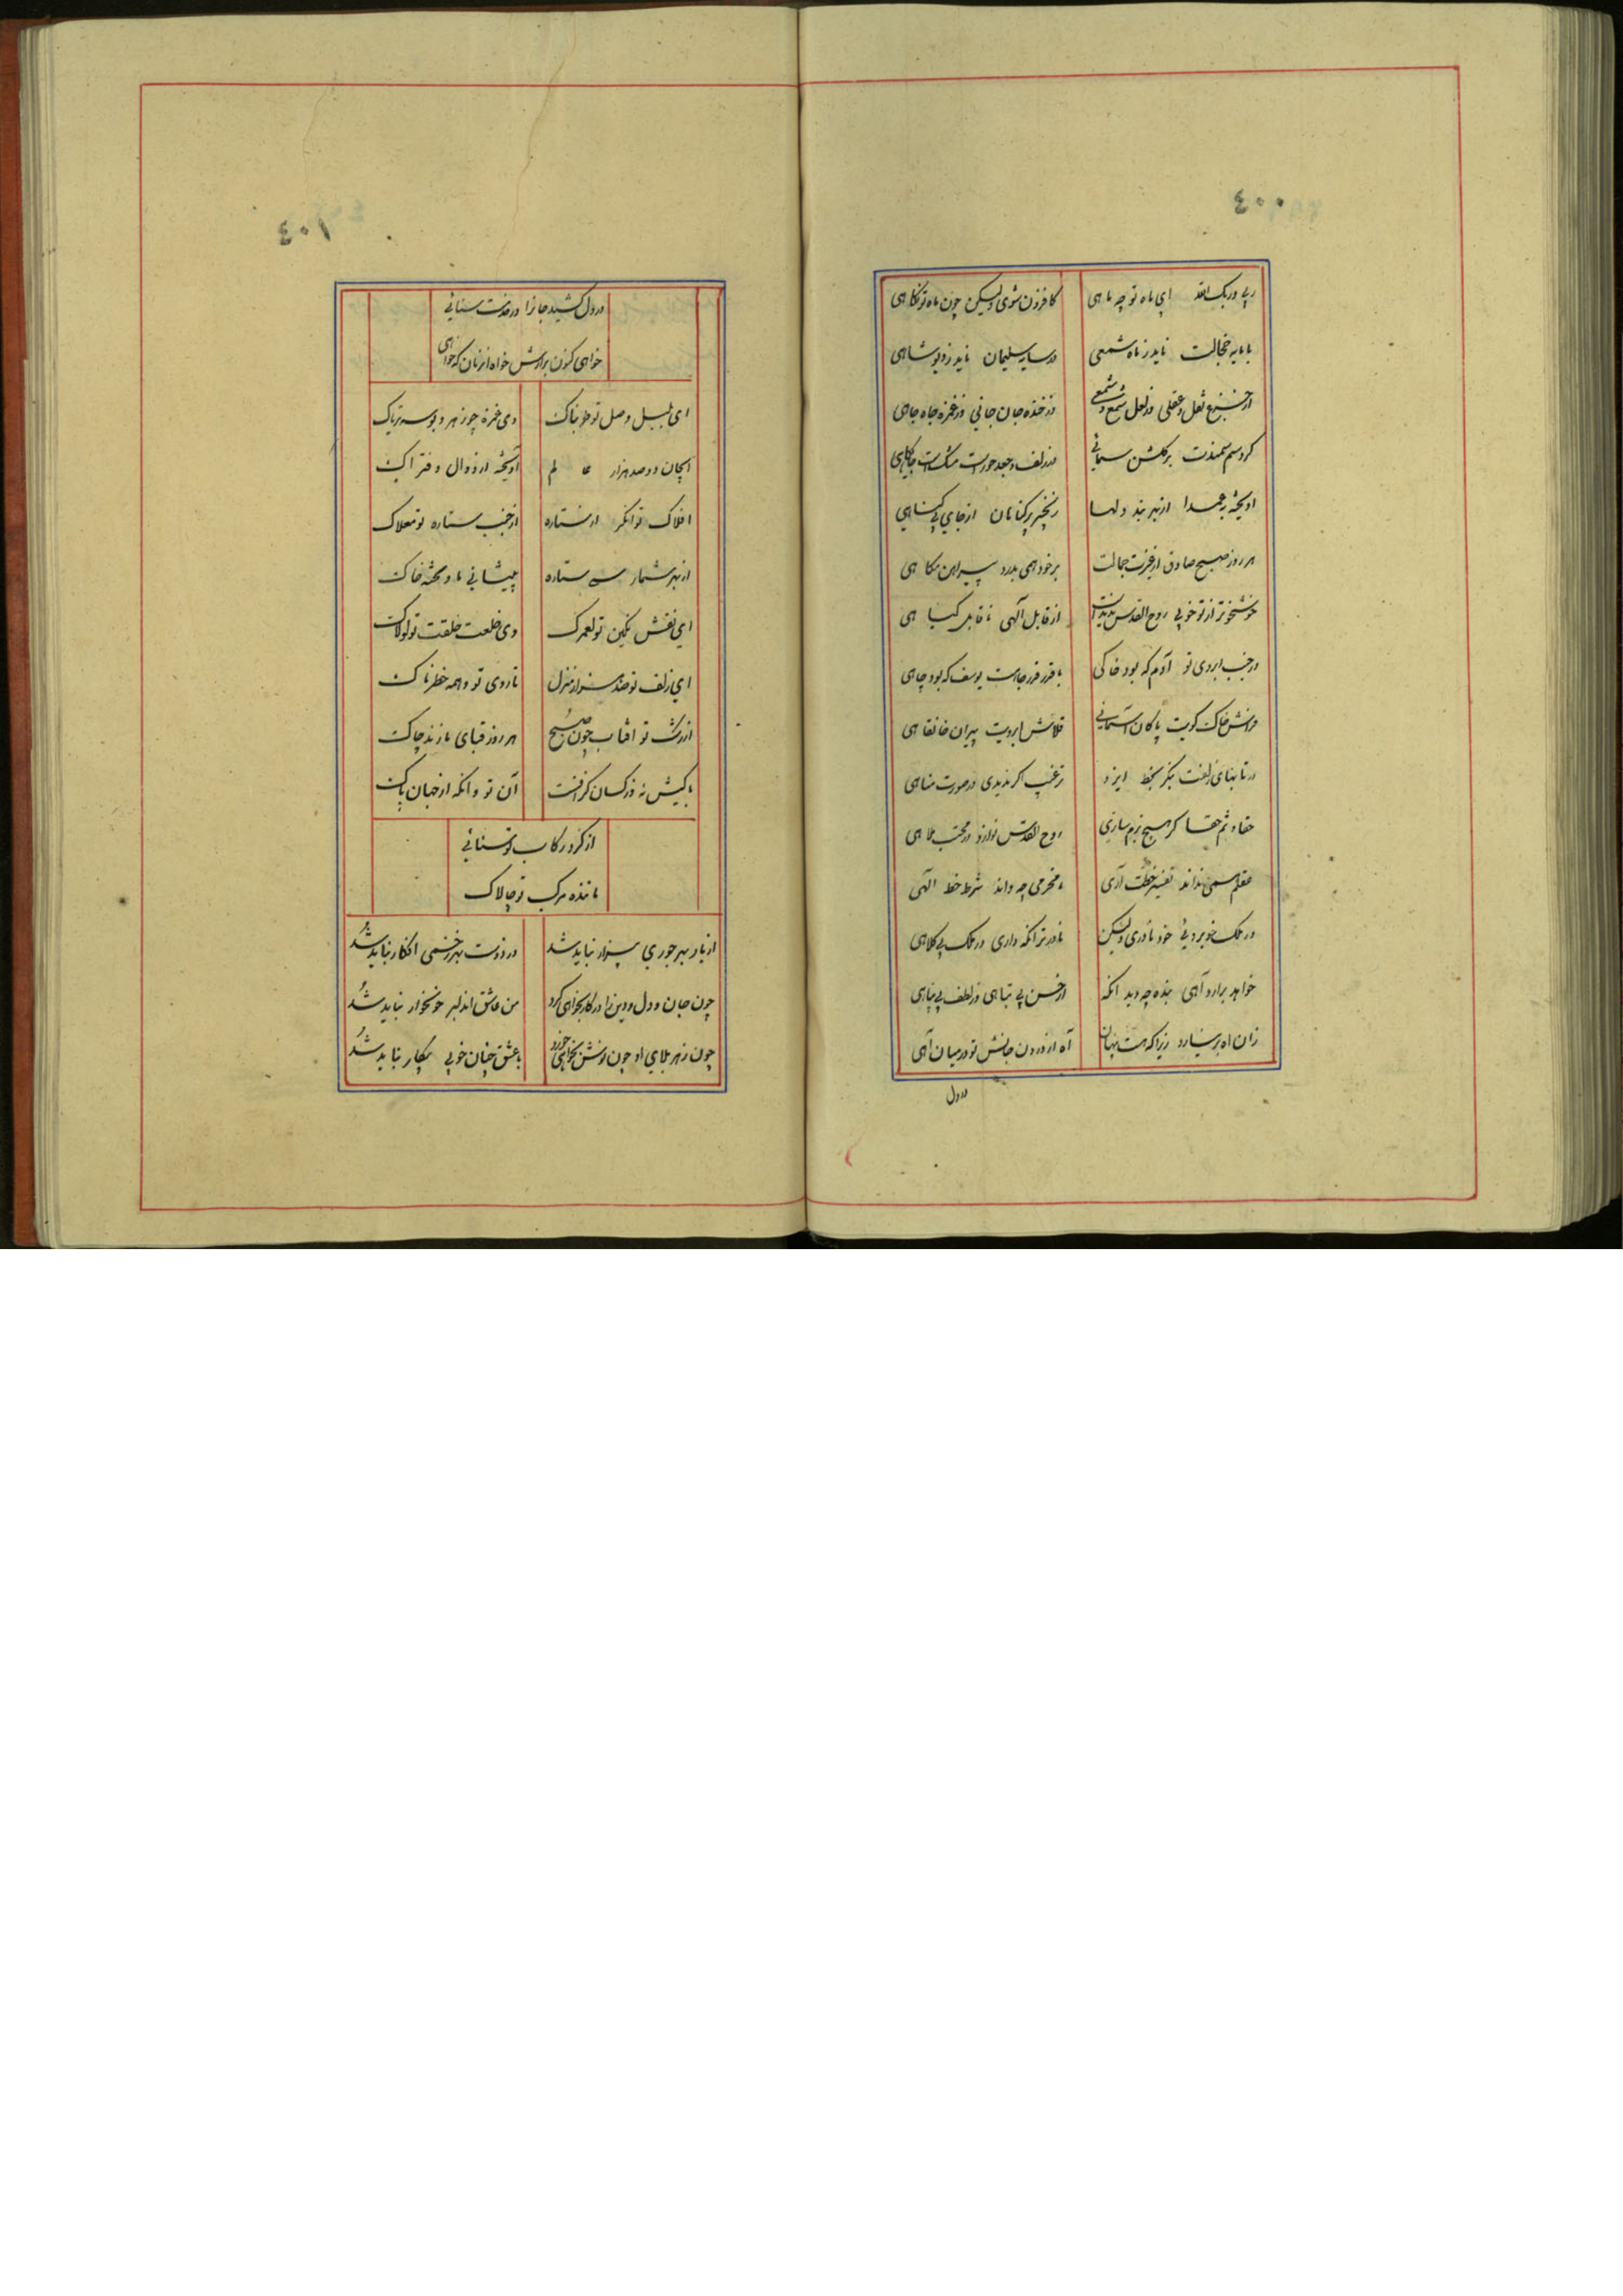 ٤٠٠
ربی وربک الله ای ماه تو چه ماهی
کافزون شوی ولیکن چون ماه تو نکاهی
با مایه خجالت ناید ز ماه شمعی
در سایه سلیمان ناید ز دیو شاهی
از جزع ثعل و عقلی در لعل شمع و شمعی
در خنده جان جانی در غمزه جاه جاهی
کرد سم سمندت بر کلشن سمائی
در زلف و جعد حورا مشکست جایکاهی
اویخته بعمدا از بهر بند دلها
زنجیر بی‌کناهان از جای بی کناهی
هر روز صبح صادق از غیرت جمالت
بر خود همی بدرد پیراهن نکاهی
خوشخوتر از تو خوئی روح القدس ندیدست
از قابل الهی تا قابل کیاهی
در جنب ابروی تو آدم که بود خاکی
با قدر قدر جاهت یوسف که بود چاهی
فراش خاک کویت پاکان آسمانی
قلاش ابرویت پیران خانقاهی
در تابهای زلفت بنکر بخط ایزد
ترغیب اکر ندیدی در صورت مناهی
حقا و ثم حقا کر هیچ بزم سازی
روح القدس نوازد در مجلس ملاهی
عقلم همی نداند تفسیر خطت آری
نامحرمی چه داند شرط خط الهی
در ملک خوبروئی خود نادری ولیکن
نادرتر انکه داری در ملک بی کلاهی
خواهد برارد آهی بنده چه دید انکه
از حسن بی تباهی در لطف بی پناهی
زان اه بر نیارد زیرا که هست پنهان
آه از درون جانش تو در میان آهی
در دل
٤٠١
در دل کشید جانرا در خدمتت سنائی
خواهی کنون برانش خواه انزمان که خواهی
ای بلبل وصل تو طربناک
وی غمزه چو زهر و بوسه تریاک
ای جان دو صد هزار عالم
آویخته از دوال و فتراک
افلاک توانکر از ستاره
از جنب ستاره تو مفلاک
از بهر شمار ستاره
پیشانی ما و تخته خاک
ای نقش نکین تو لعمرک
وی خلعت خلقت تو لولاک
ای زلف تو صد هزار منزل
تا روی تو و همه خطرناک
از رشک تو افتاب چون صبح
هر روز قبای ما زند چاک
با کیش نه در کسان کرفت
آن تو و انکه از جهان پاک
از کرد رکاب تو سنائی
مانند مرکب تو چالاک
از یار بهر جوری بیزار نباید شد
در دوست بهر زخمی افکار نباید شد
چون جان و دل و دین را در کار بخواهی کرد
من عاشق ان دلبر خونخوار نباید شد
چون زهر بلای او چون نوش بخواهی خورد
با عشق چنان خوبی بیکار نباید شد